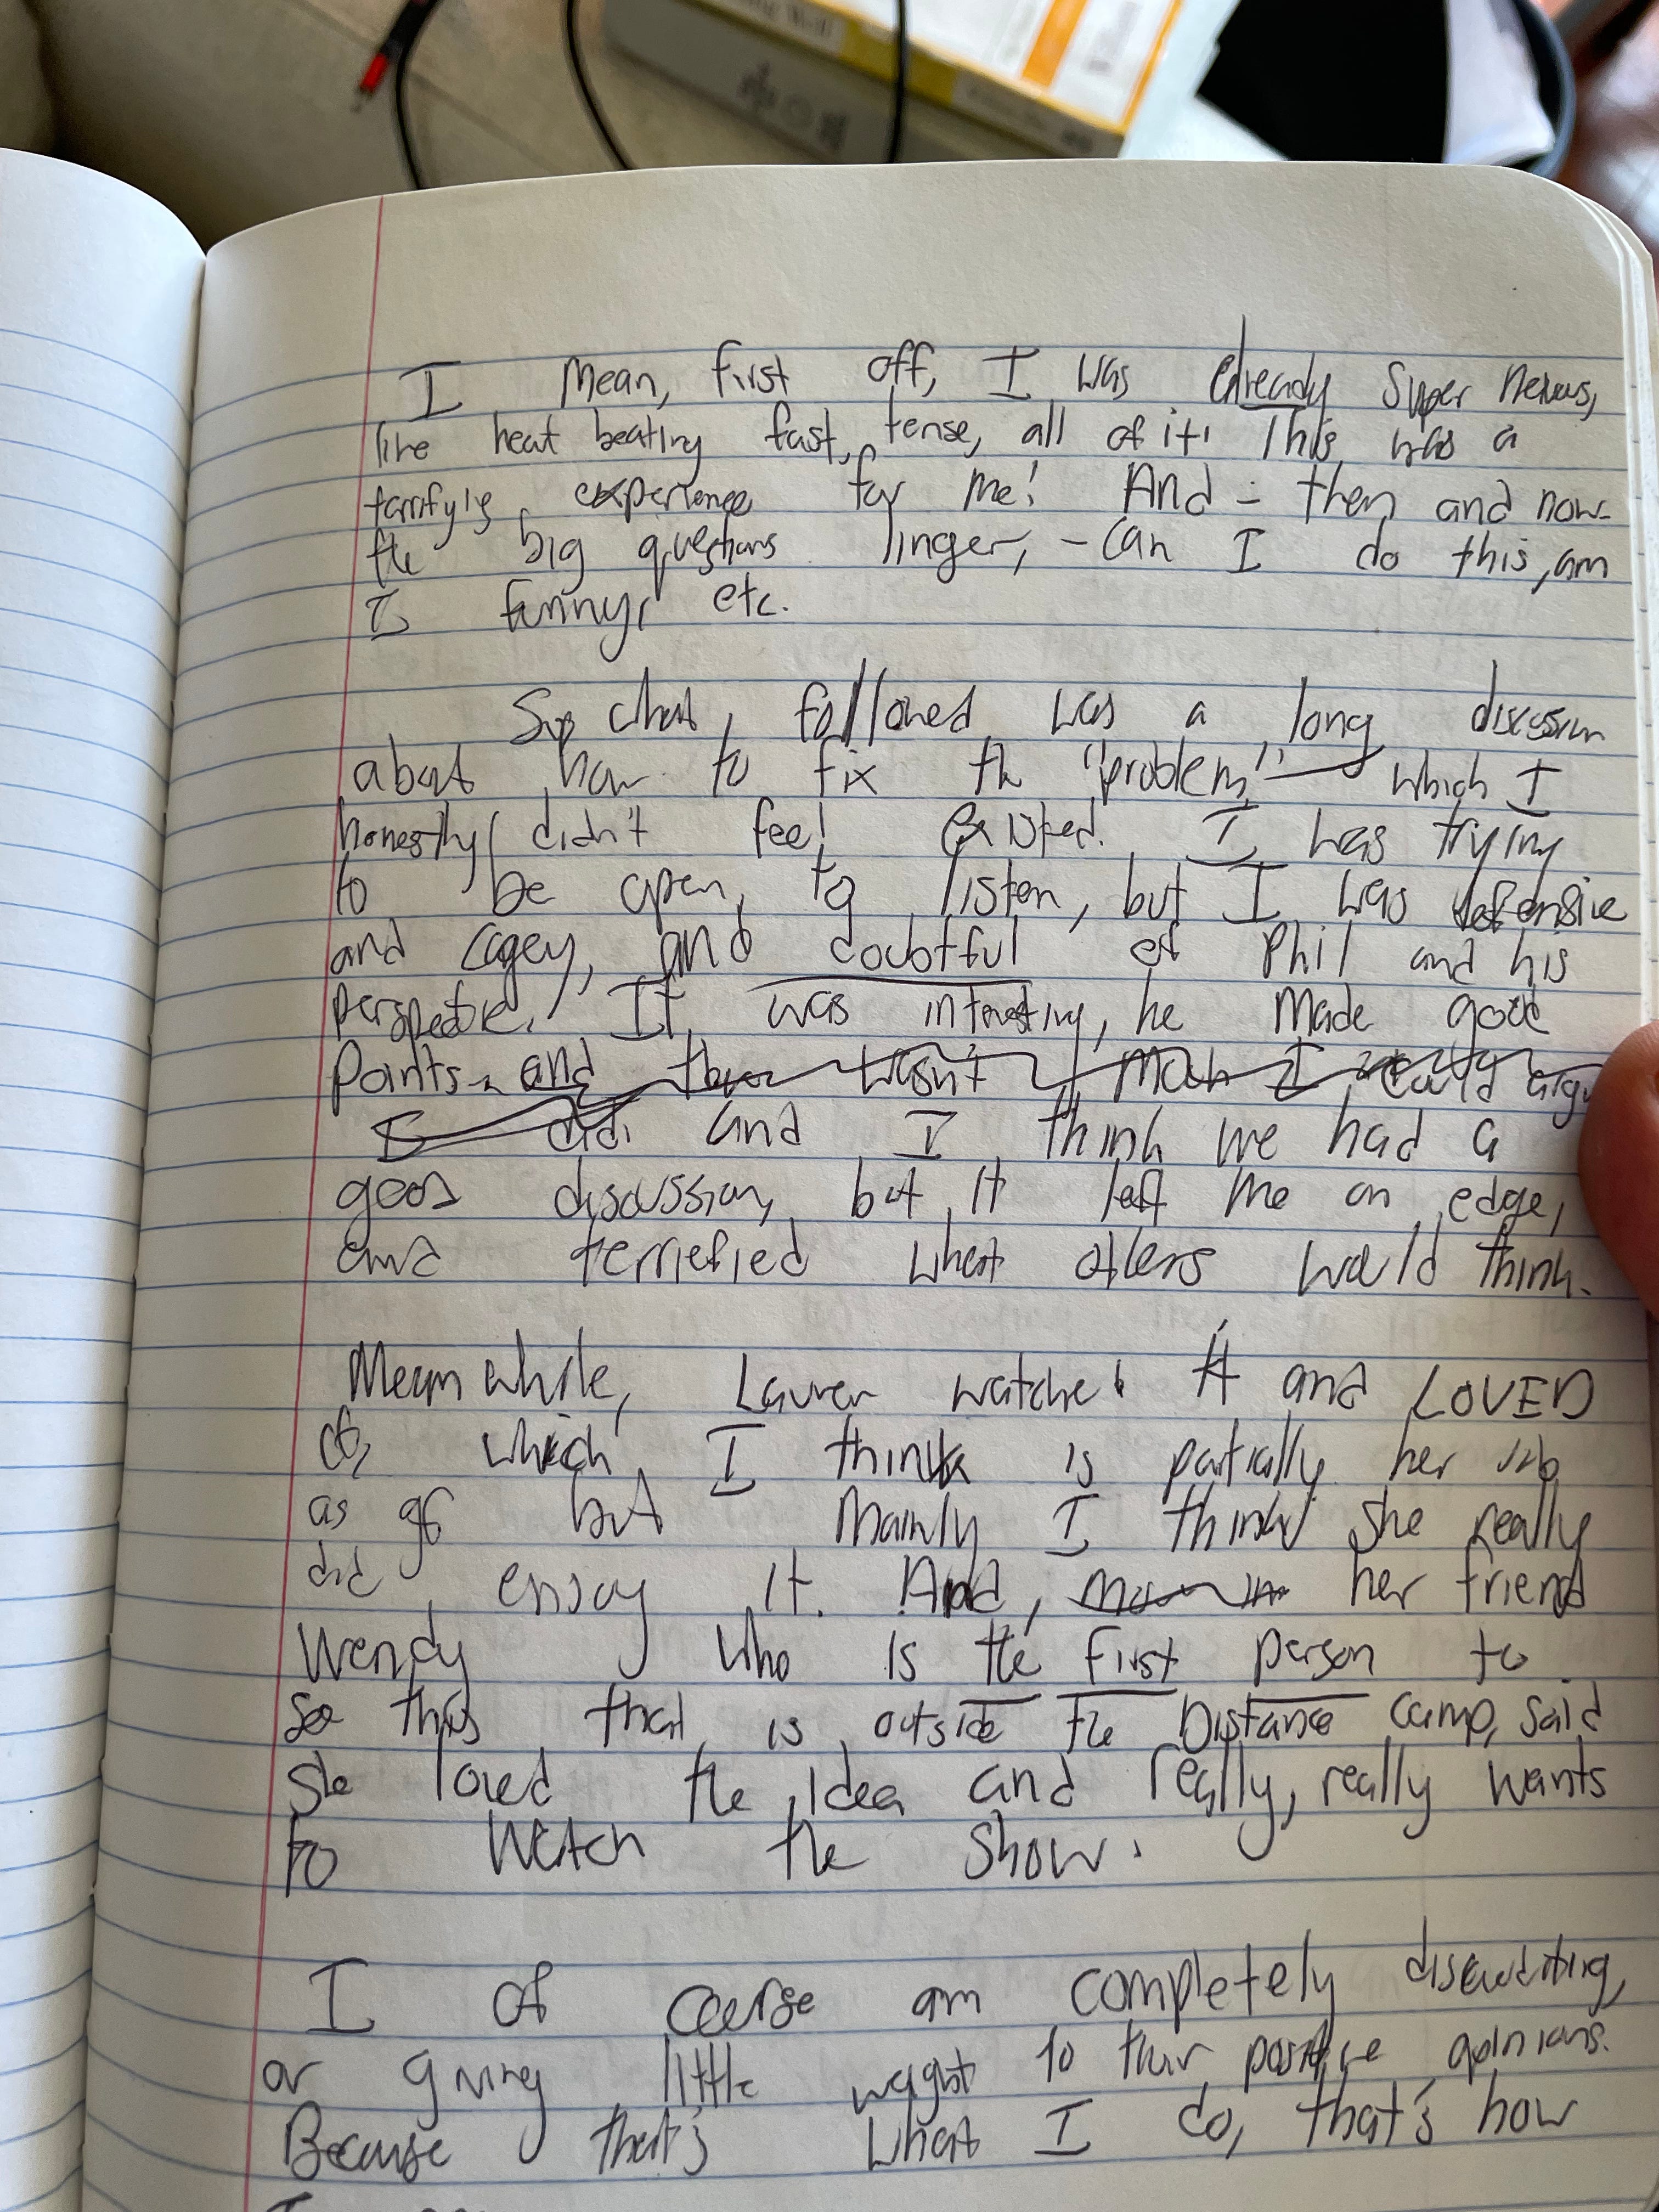 I mean, first off, I was already super nervous,
like heat beating fast, tense, all of it! This was a
terrifying experience for me! And - then and now -
the big questions linger, - can I do this, am
I funny, etc.
So what followed was a long discussion
about how to fix the "problem" — which I
honestly didn't feel existed. I was trying
to be open, to listen, but I was defensive
and cagey, and doubtful of Phil and his
perspective. It was interesting, he made good
points, and there wasn't much I could argue
I did and I think we had a
good discussion, but it left me on edge,
and terriefied what others would think.
Meanwhile, Lauren watched it and LOVED
it, which I think is partially her job
as gf but mainly I think she really
did enjoy it. And, her friend
Wendy who is the first person to
see this that is outside the Distance camp, said
she loved the idea and really, really wants
to watch the show.
I of course am completely discrediting,
or giving little weight to their positive opinions.
Because that's what I do, that's how